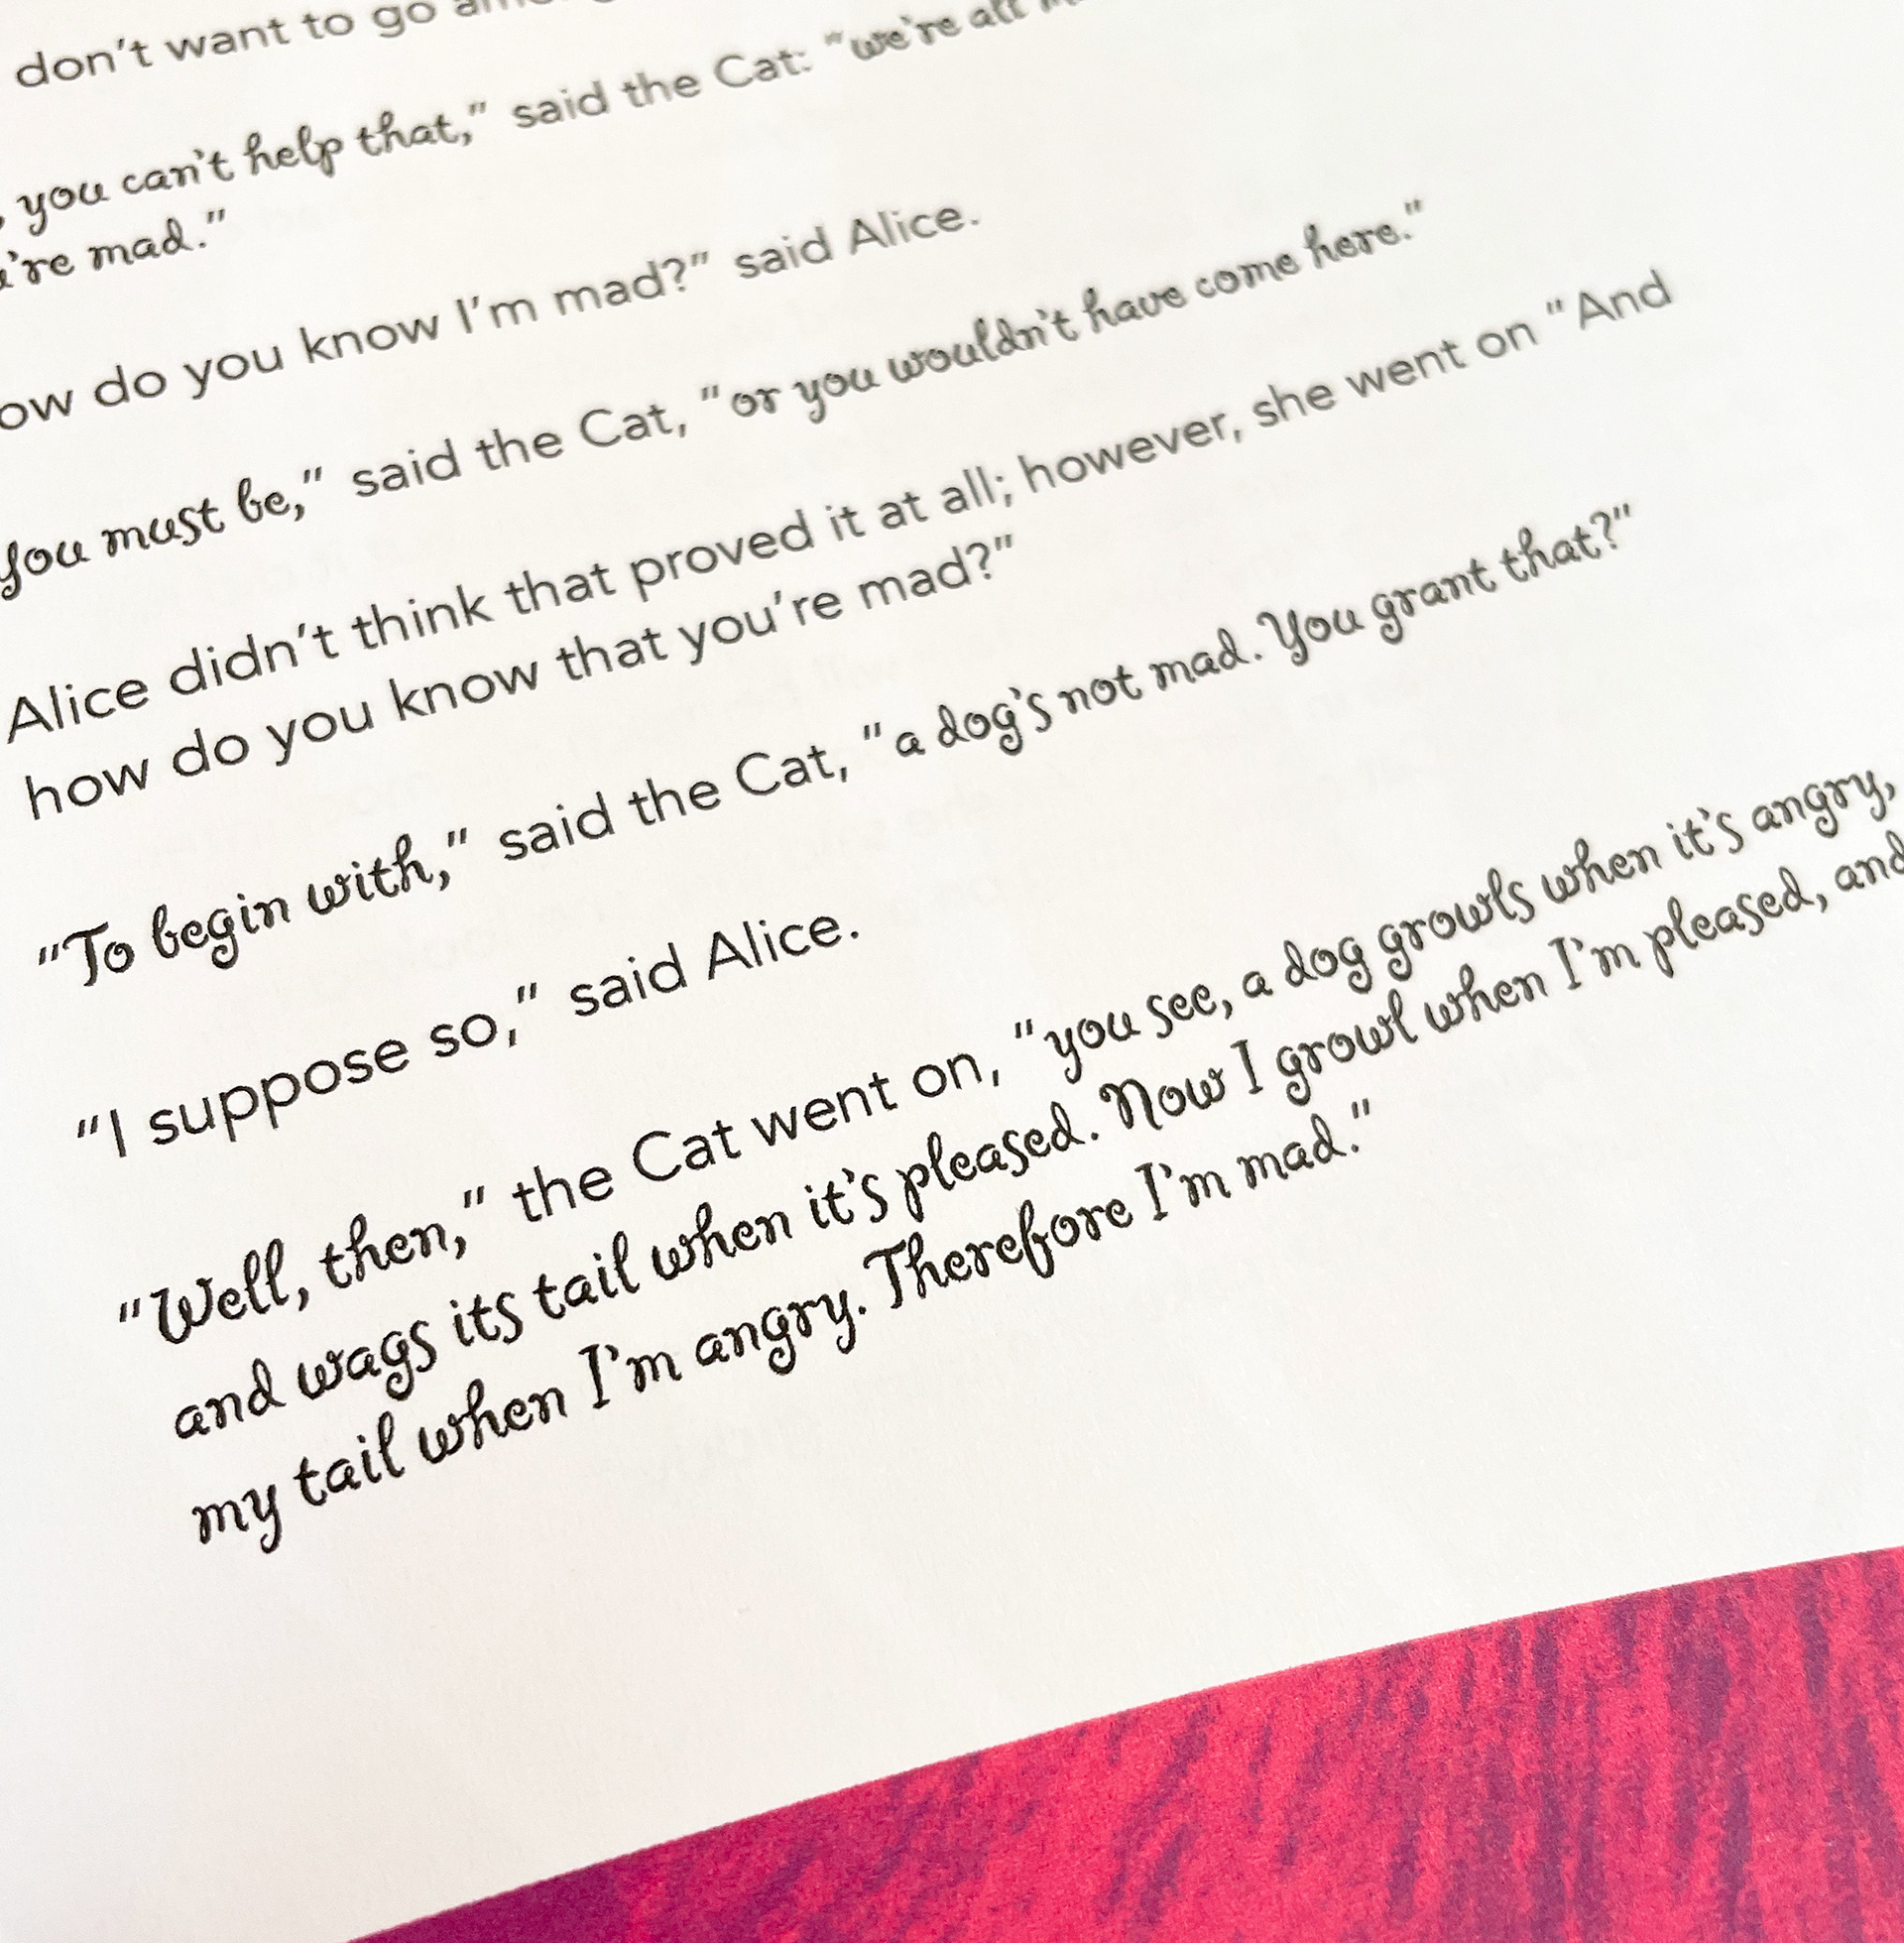 don't want to go
, you can't help that," said the Cat: "we're all
're mad."
ow do you know I'm mad?" said Alice.
You must be," said the Cat, "or you wouldn't have come here."
Alice didn't think that proved it at all; however, she went on "And
how do you know that you're mad?"
"To begin with," said the Cat, "a dog's not mad. You grant that?"
"I suppose so," said Alice.
"Well, then," the Cat went on, "you see, a dog growls when it's angry,
and wags its tail when it's pleased. Now I growl when I'm pleased, and
my tail when I'm angry. Therefore I'm mad."